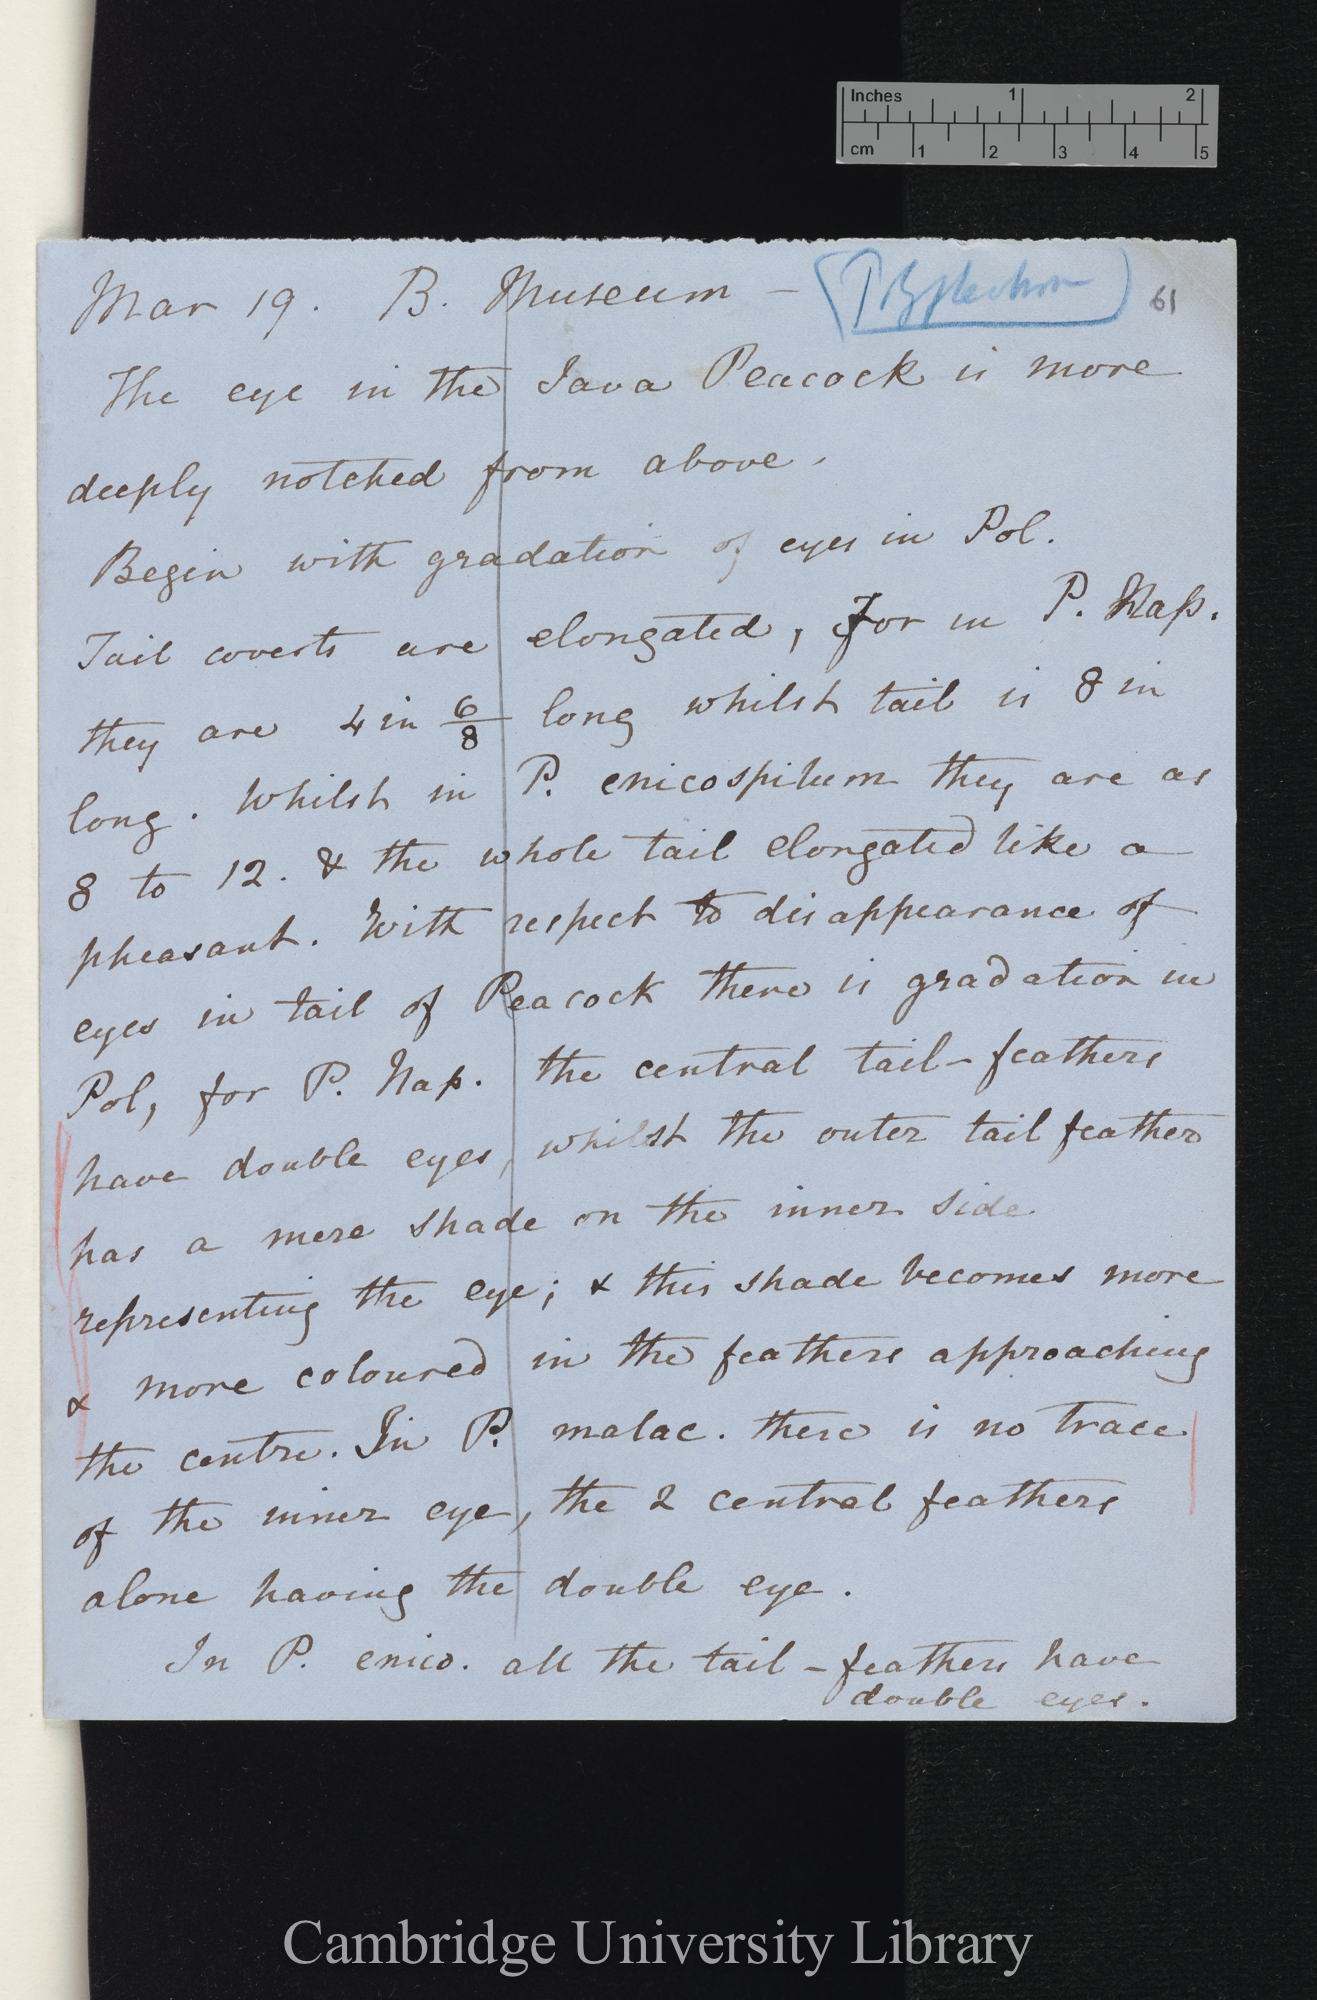 Inches 1 2
cm 1 2 3 4 5
Mar 19. B. Museum – (Polyplectron) 61
The eye in the Java Peacock is more
deeply notched from above.
Begin with gradation of eyes in Pol.
Tail coverts are elongated, for in P. Nap.
they are 4 in 6/8 long whilst tail is 8 in
long. Whilst in P. enicospilum they are as
8 to 12. & the whole tail elongated like a
pheasant. With respect to disappearance of
eyes in tail of Peacock there is gradation in
Pol, for P. Nap. the central tail-feathers
have double eyes, whilst the outer tail feather
has a mere shade on the inner side
representing the eye; & this shade becomes more
& more coloured in the feathers approaching
the centre. In P. malac. there is no trace
of the inner eye, the 2 central feathers
alone having the double eye.
In P. enico. all the tail-feathers have
double eyes.
Cambridge University Library